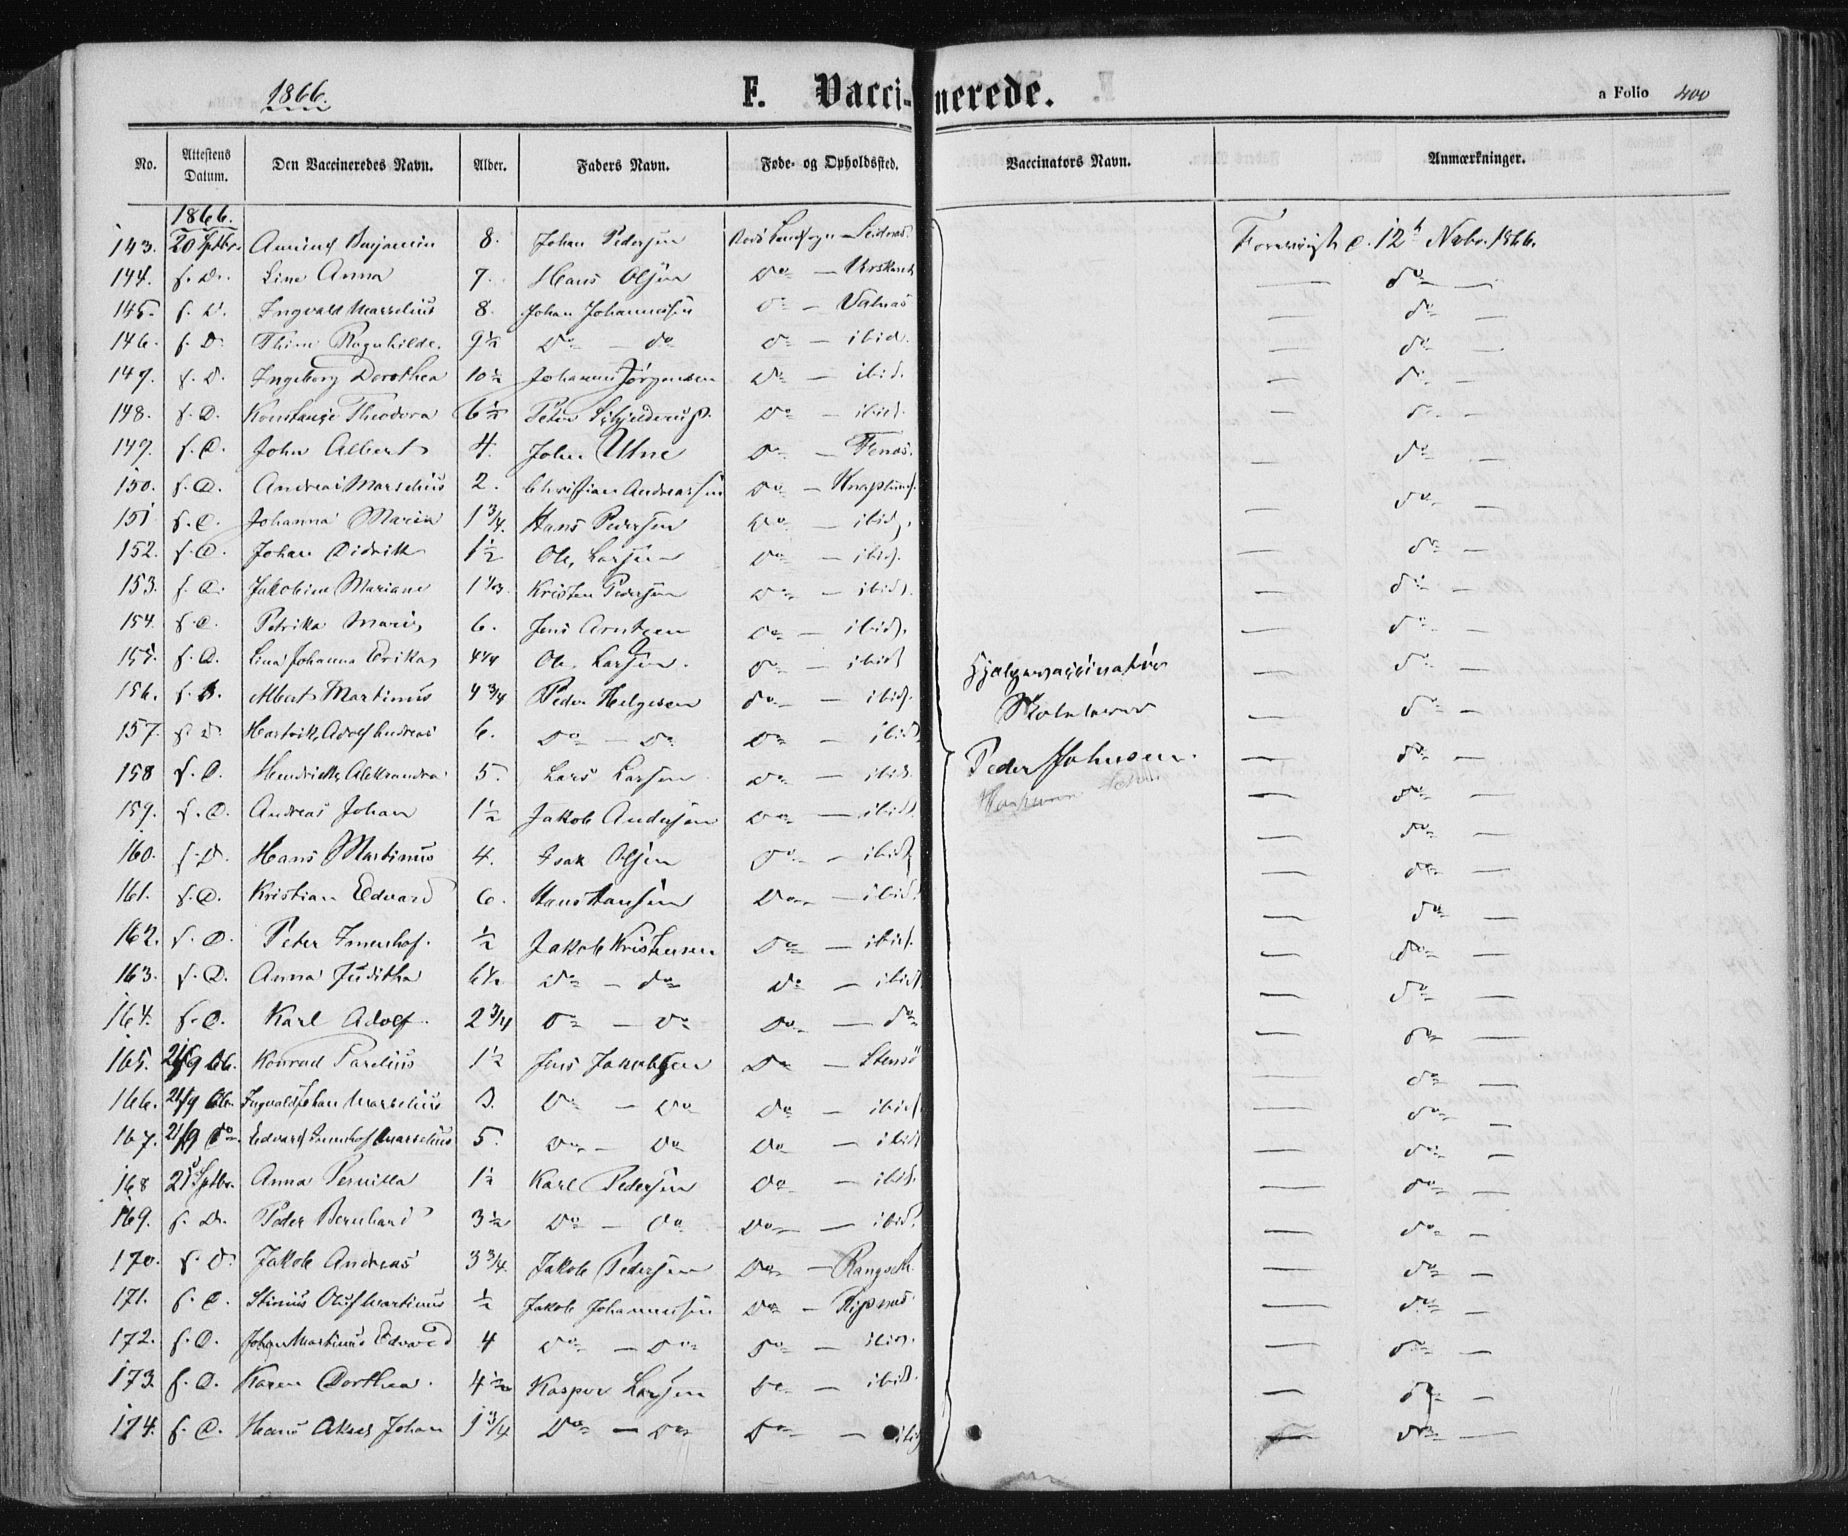 1866.
F. Vaccinerede.
a Folio 400
No. Attestens Datum. Den Vaccineredes Navn. Alder. Faders Navn. Føde- og Opholdssted. Vaccinators Navn. Anmærkninger.
1866.
143. 20 Sptbr. Benjamin 8. Johan Pedersen Forevist d. 12 Novbr. 1866.
144. s. D. Line Anna 7. Hans Olsen Do — — do —
145. s. D. Ingvald Marselius 8. Johan Johannesen Do — Valnæs — do —
146. s. D. Thine Ragnhilde. 9½ Do — do Do — ibid. — do —
147. s. D. Ingeborg Dorothea 10½ Johannes Jørgensen Do — ibid. — do —
148. s. D. Konstanse Theodora 6½ Peter Schjelderup Do — ibid. — do —
149. s. D. John Albert 4. John Utne Do — — do —
150. s. D. Andreas Marselius 2. Christian Andreassen Do — Knaplund. — do —
151. s. D. Johanna Maria 1¾. Hans Pedersen Do — ibid. — do —
152. s. D. Johan Didrik 1½ Ole Larsen Do — ibid. — do —
153. s. D. Jakobine Mariane 1⅓. Kristen Pedersen Do — ibid. — do —
154. s. D. Petrika Maria 6. Jens Arntzen Do — ibid. — do —
155. s. D. Lina Johanna Erika 4¼ Ole Larsen. Do — ibid. Hjælpevaccinatør — do —
156. s. D. Albert Martinus 4¾ Peder Helgesen do — ibid. Skolelærer — do —
157. s. D. Hartvik Adolf Andreas 6. Do — Do Do — ibid. — do —
158 s. D. Hendrikke Aleksandra 5. Lars Larsen Do — ibid. Peder Johnsen. — do —
159. s. D. Andreas Johan 1½ Jakob Andersen Do — ibid. — do —
160. s. D. Hans Martinus 4. Isak Olsen Do — ibid. — do —
161. s. D. Kristian Edvard 6. Hans Hansen Do — ibid. — do —
162. s. D. Peter Imenhof. ½ Jakob Kristensen Do — ibid. — do —
163. s. D. Anna Juditha 6½ Do — do Do — ibid. — do —
164. s. D. Karl Adolf. 2¾ Do — Do Do — do — do —
165. 21/9 66. Konrad Parelius 1½ Jens Jakobsen Do — Stensø — do —
166. 21/9 66. Ingvald Johan Marselius 3. Do — Do Do — ibid. — do —
167. 21/9 do Edvard Imenhof Marselius 5. Do — Do Do — ibid — do —
168 21 Sptbr. Anna Pernilla 1½ Karl Pedersen Do — ibid. — do —
169. s. D. Peder Bernhard 3½ Do — Do Do — ibid. — do —
170. s. D. Jakob Andreas 3¾ Jakob Pedersen Do — — do —
171. s. D. Stinius Oluf Martinus ½ Jakob Johannesen Do — — do —
172. s. D. Johan Martinus Edvard 4 Do — Do Do — ibid. — do —
173. s. D. Karen Dorthea. 4½ Kasper Larsen Do — ibid. — do —
174. s. D. Hans Johan 1¾ Do — Do Do — ibid — do —